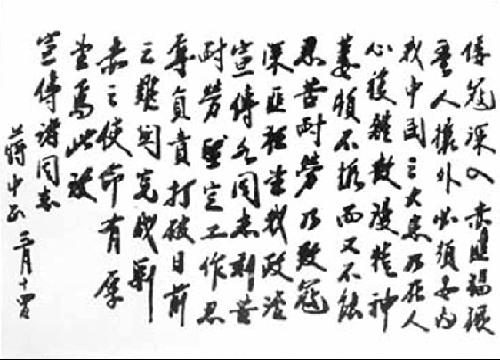 倭寇深入赤匪猖獗
吾人攘外必須安內
我中國之大患乃在人
心複雜散漫精神
萎頓不振而又不能
忍苦耐勞乃致寇
深匪猖當我政治
宣傳各同志刻苦
耐勞堅定工作忍
辱負責打破目前
之難關完成剿
赤之使命有厚
望焉此致
宣傳諸同志
蔣中正 二月十四日